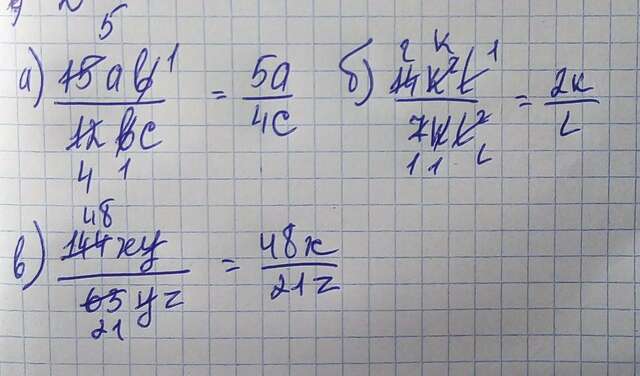 а) 15ab/12bc = 5a/4c б) 14k²l/7kl² = 2k/l
в) 144xy/63yz = 48x/21z